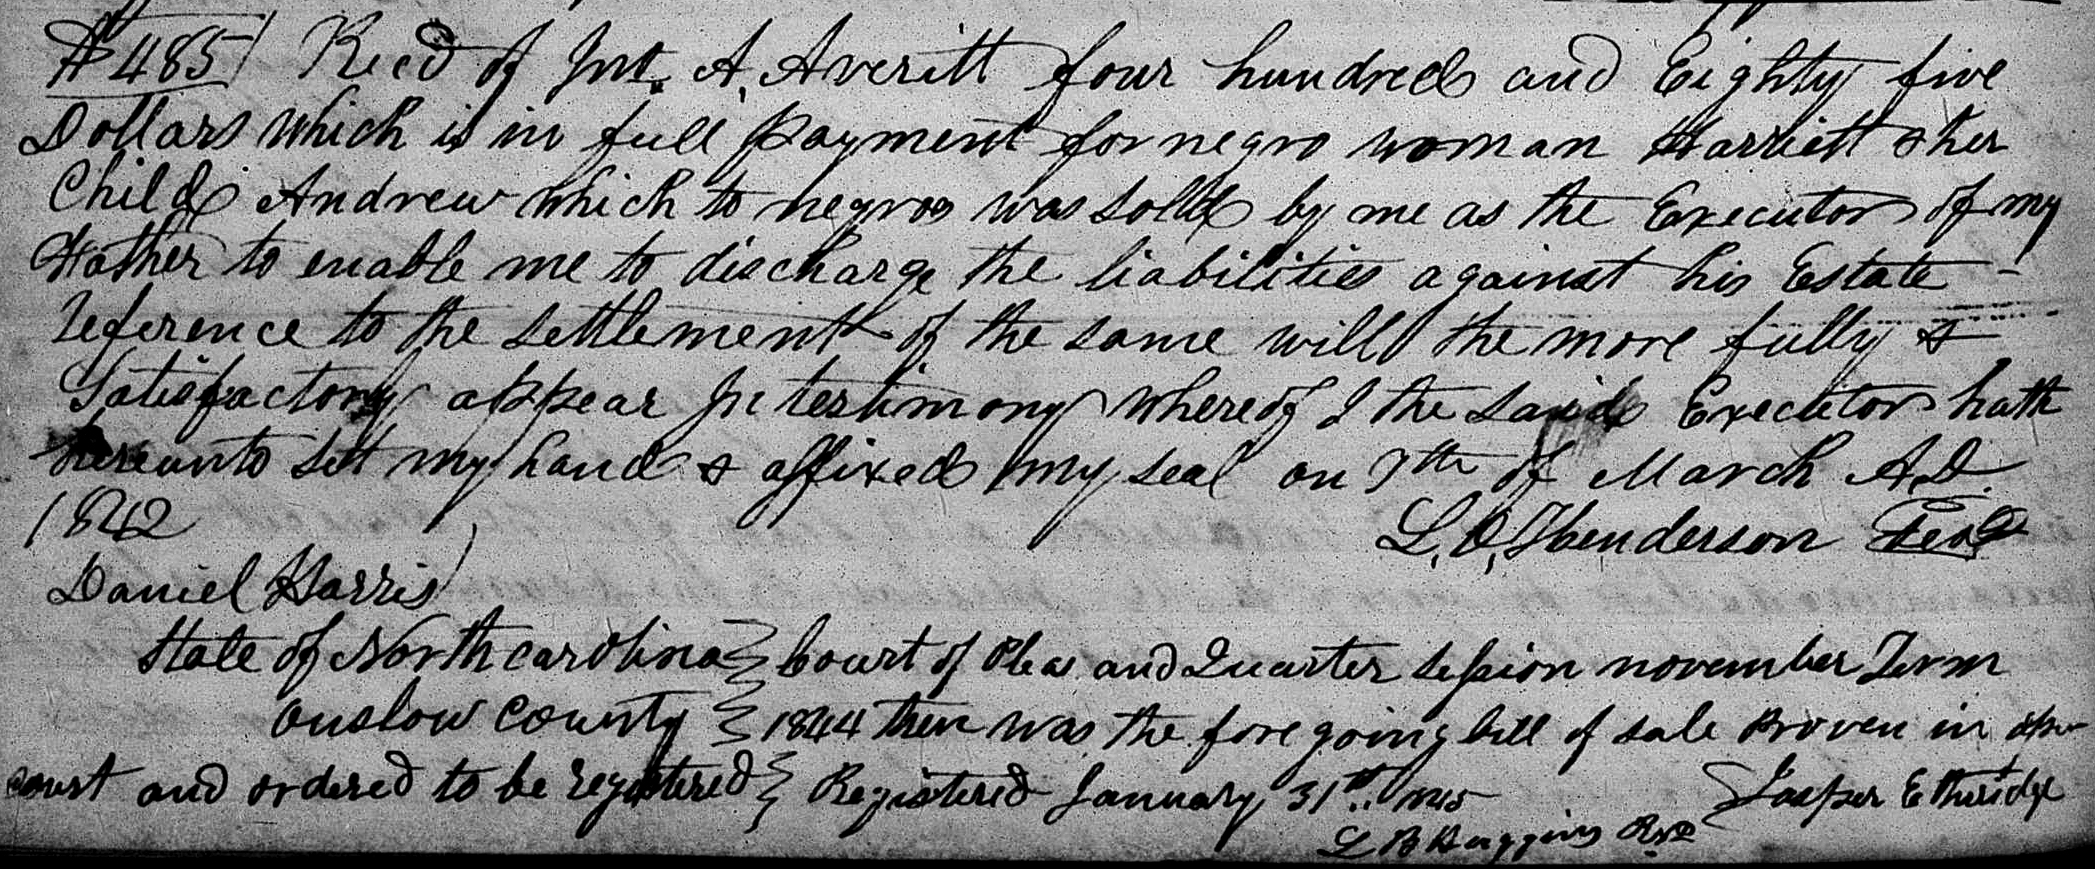 $485/ Recd of Jnt. A. Averitt four hundred and Eighty five
Dollars which is in full payment for negro woman Harriett & her
Child Andrew which to negros was solld by me as the Executor of my
Father to enable me to discharge the liabilities against his Estate -
reference to the settlement of the same will the more fully &
Satisfactory appear In testimony whereof I the said Executor hath
hereunto set my hand & affixed my seal on 7th of March A.D.
1842
L. O. Henderson Seal
Daniel Harris
State of North carolina } Court of Pleas and Quarter session november Term
Onslow County } 1844 then was the foregoing bill of sale proven in open
court and ordered to be registered } Registered January 31st 1845
Jasper Etheridge
L B Huggins